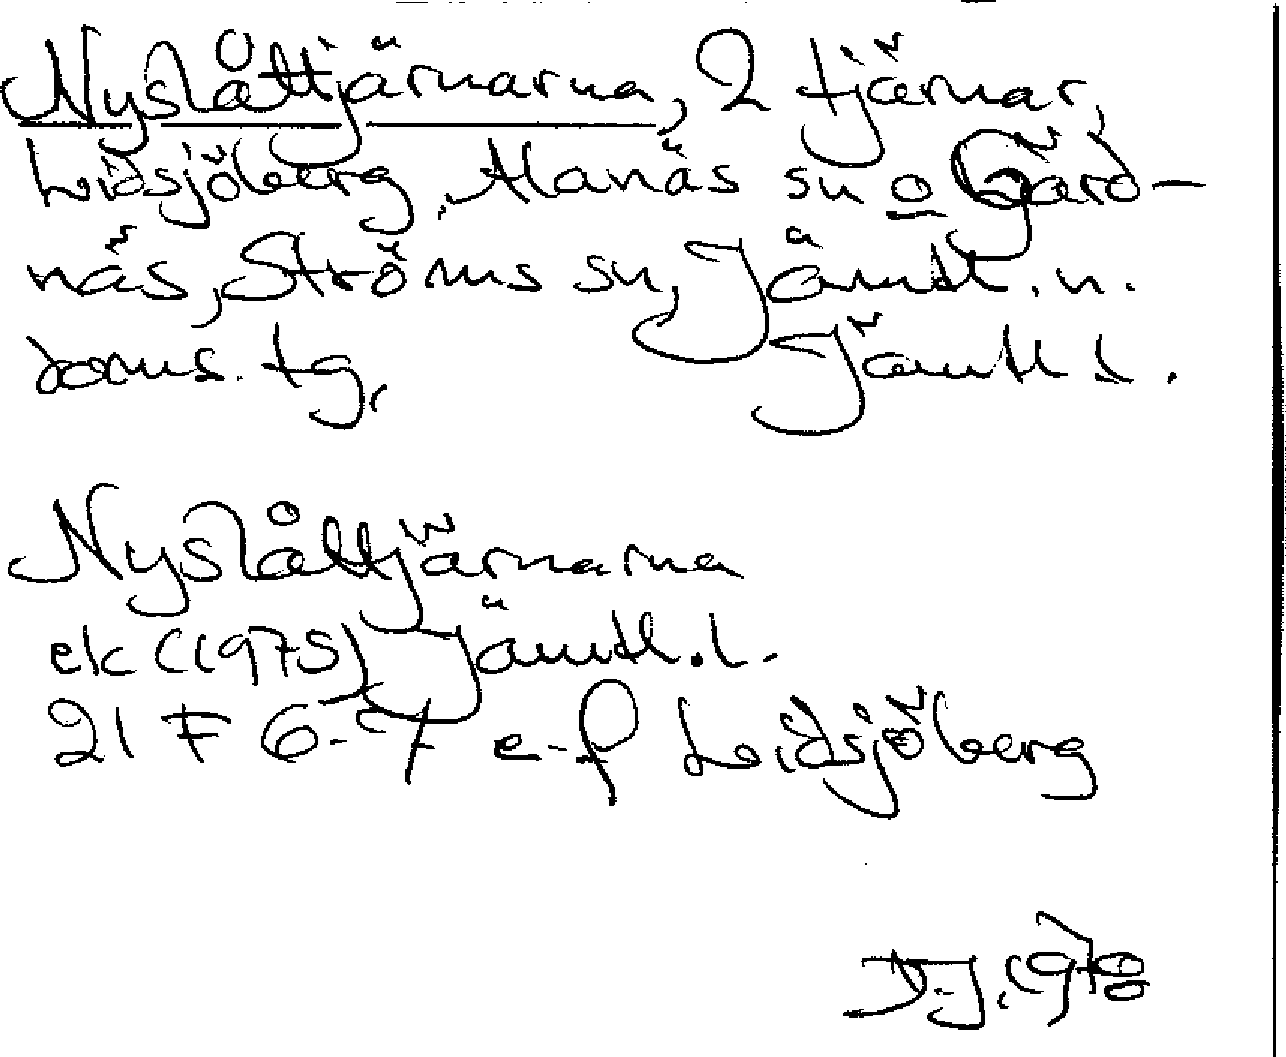 Nyslåttjärnarna, 2 tjärnar,
Lidsjöberg, Alanäs sn o Gärd-
näs, Ströms sn, Jämtl. n.
doms. tg, Jämtl l.
Nyslåttjärnarna
ek (1975) Jämtl. l.
21 F 6-7 e-f Lidsjöberg
D.J. 1978